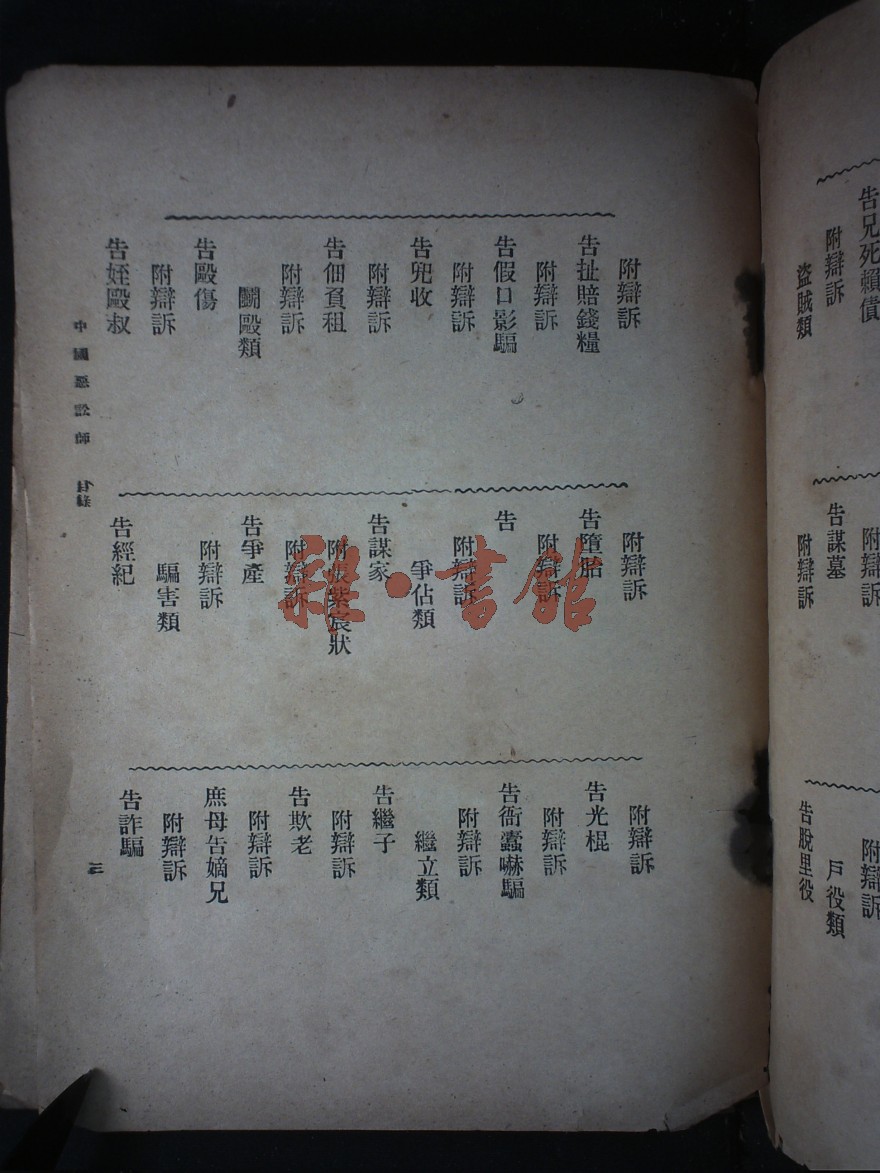 附辯訴
告扯賠錢糧
附辯訴
告假口影騙
附辯訴
告兜收
附辯訴
告佃負租
附辯訴
鬭毆類
告毆傷
附辯訴
告姪毆叔
附辯訴
告墮胎
附辯訴
告
附辯訴
爭佔類
告謀家
附張紫宸狀
附辯訴
告爭產
附辯訴
騙害類
告經紀
附辯訴
告光棍
附辯訴
告衙蠹嚇騙
附辯訴
繼立類
告繼子
附辯訴
告欺老
附辯訴
庶母告嫡兄
附辯訴
告詐騙
中國惡訟師 目錄
三
告兄死賴債
附辯訴
盜賊類
附辯訴
告謀墓
附辯訴
附辯訴
戶役類
告脫里役
雜·書館